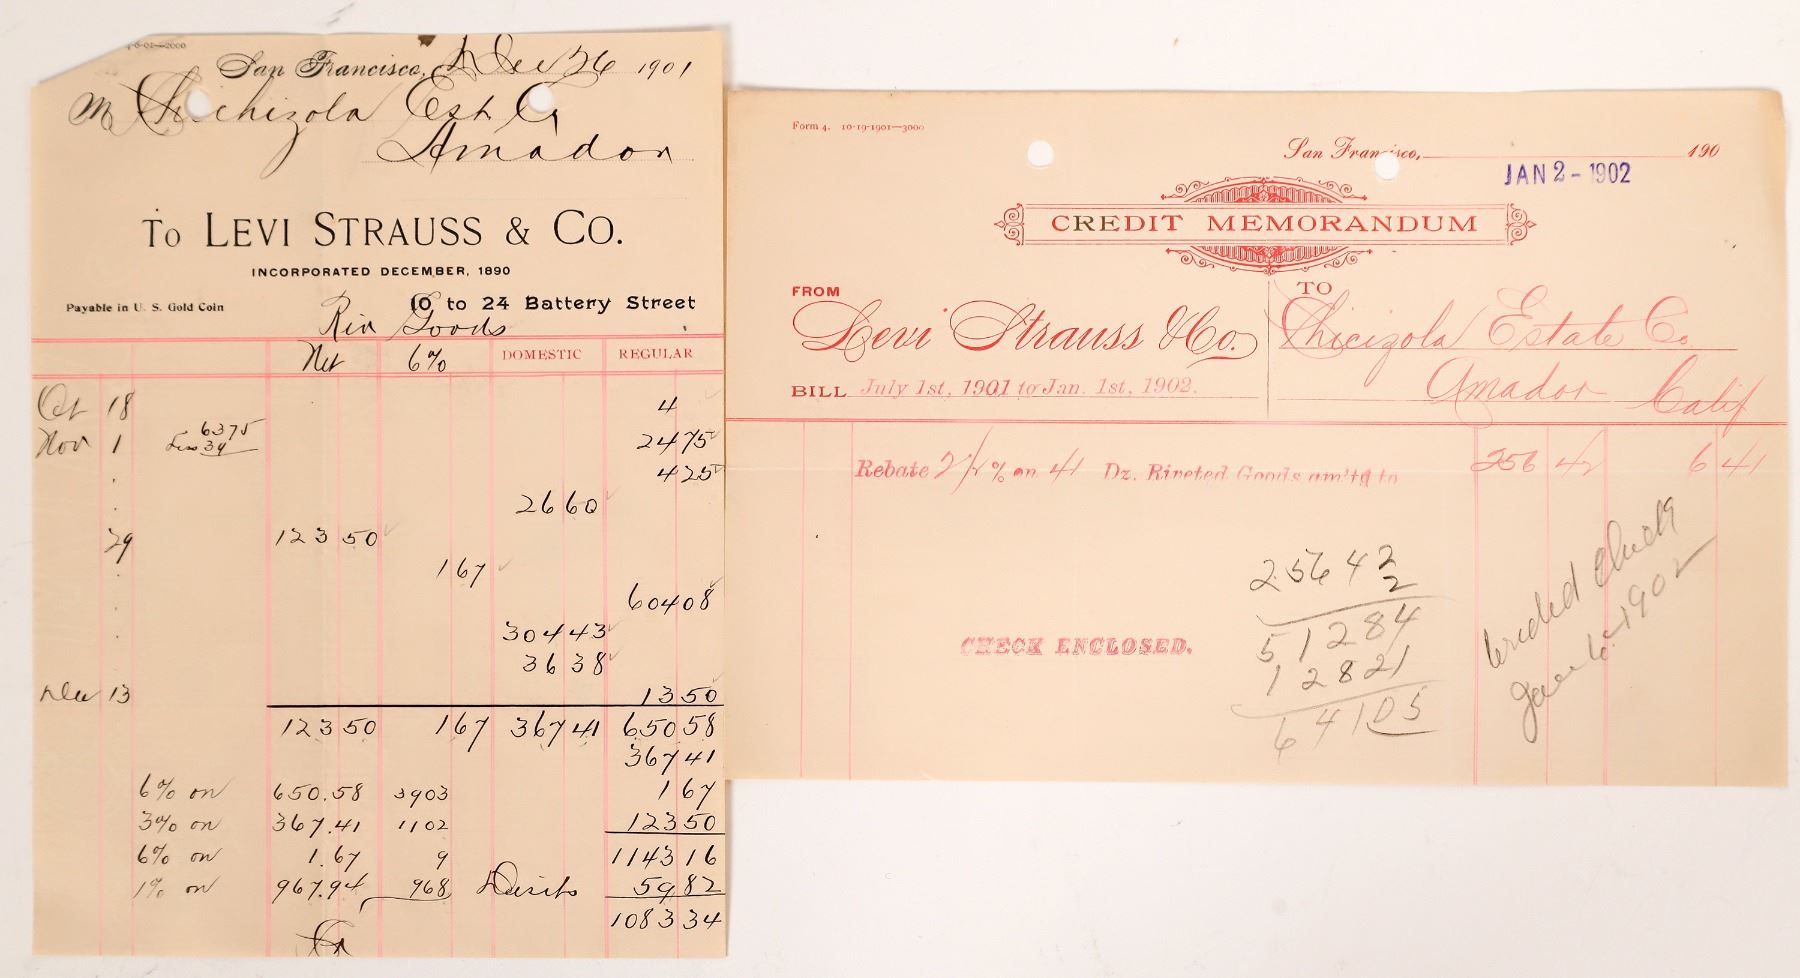 6-01—2000
San Francisco, Dec 26 1901
M Chichizola Est Co
Amador
To Levi Strauss & Co.
INCORPORATED DECEMBER, 1890
Payable in U. S. Gold Coin 10 to 24 Battery Street
Riv Goods
Net 6% DOMESTIC REGULAR
Oct 18 4
Nov 1 6375 2475
Less 39
425
2660
29 12350
167
60408
30443
3638
Dec 13 1350
12350 167 36741 65058
36741
6% on 650.58 3903 167
3% on 367.41 1102 12350
6% on 1.67 9 114316
1% on 967.94 968 Disct 5982
108334
Form 4. 10-19-1901—3000
San Francisco, 190
JAN 2 - 1902
CREDIT MEMORANDUM
FROM
Levi Strauss & Co.
TO
Chicizola Estate Co
Amador Calif
BILL July 1st, 1901 to Jan. 1st, 1902.
Rebate 2½% on 41 Dz. Riveted Goods am't'g to 256 42 6 41
25642
2
51284
12821
64105
CHECK ENCLOSED.
Credited Check
Jan 6-1902